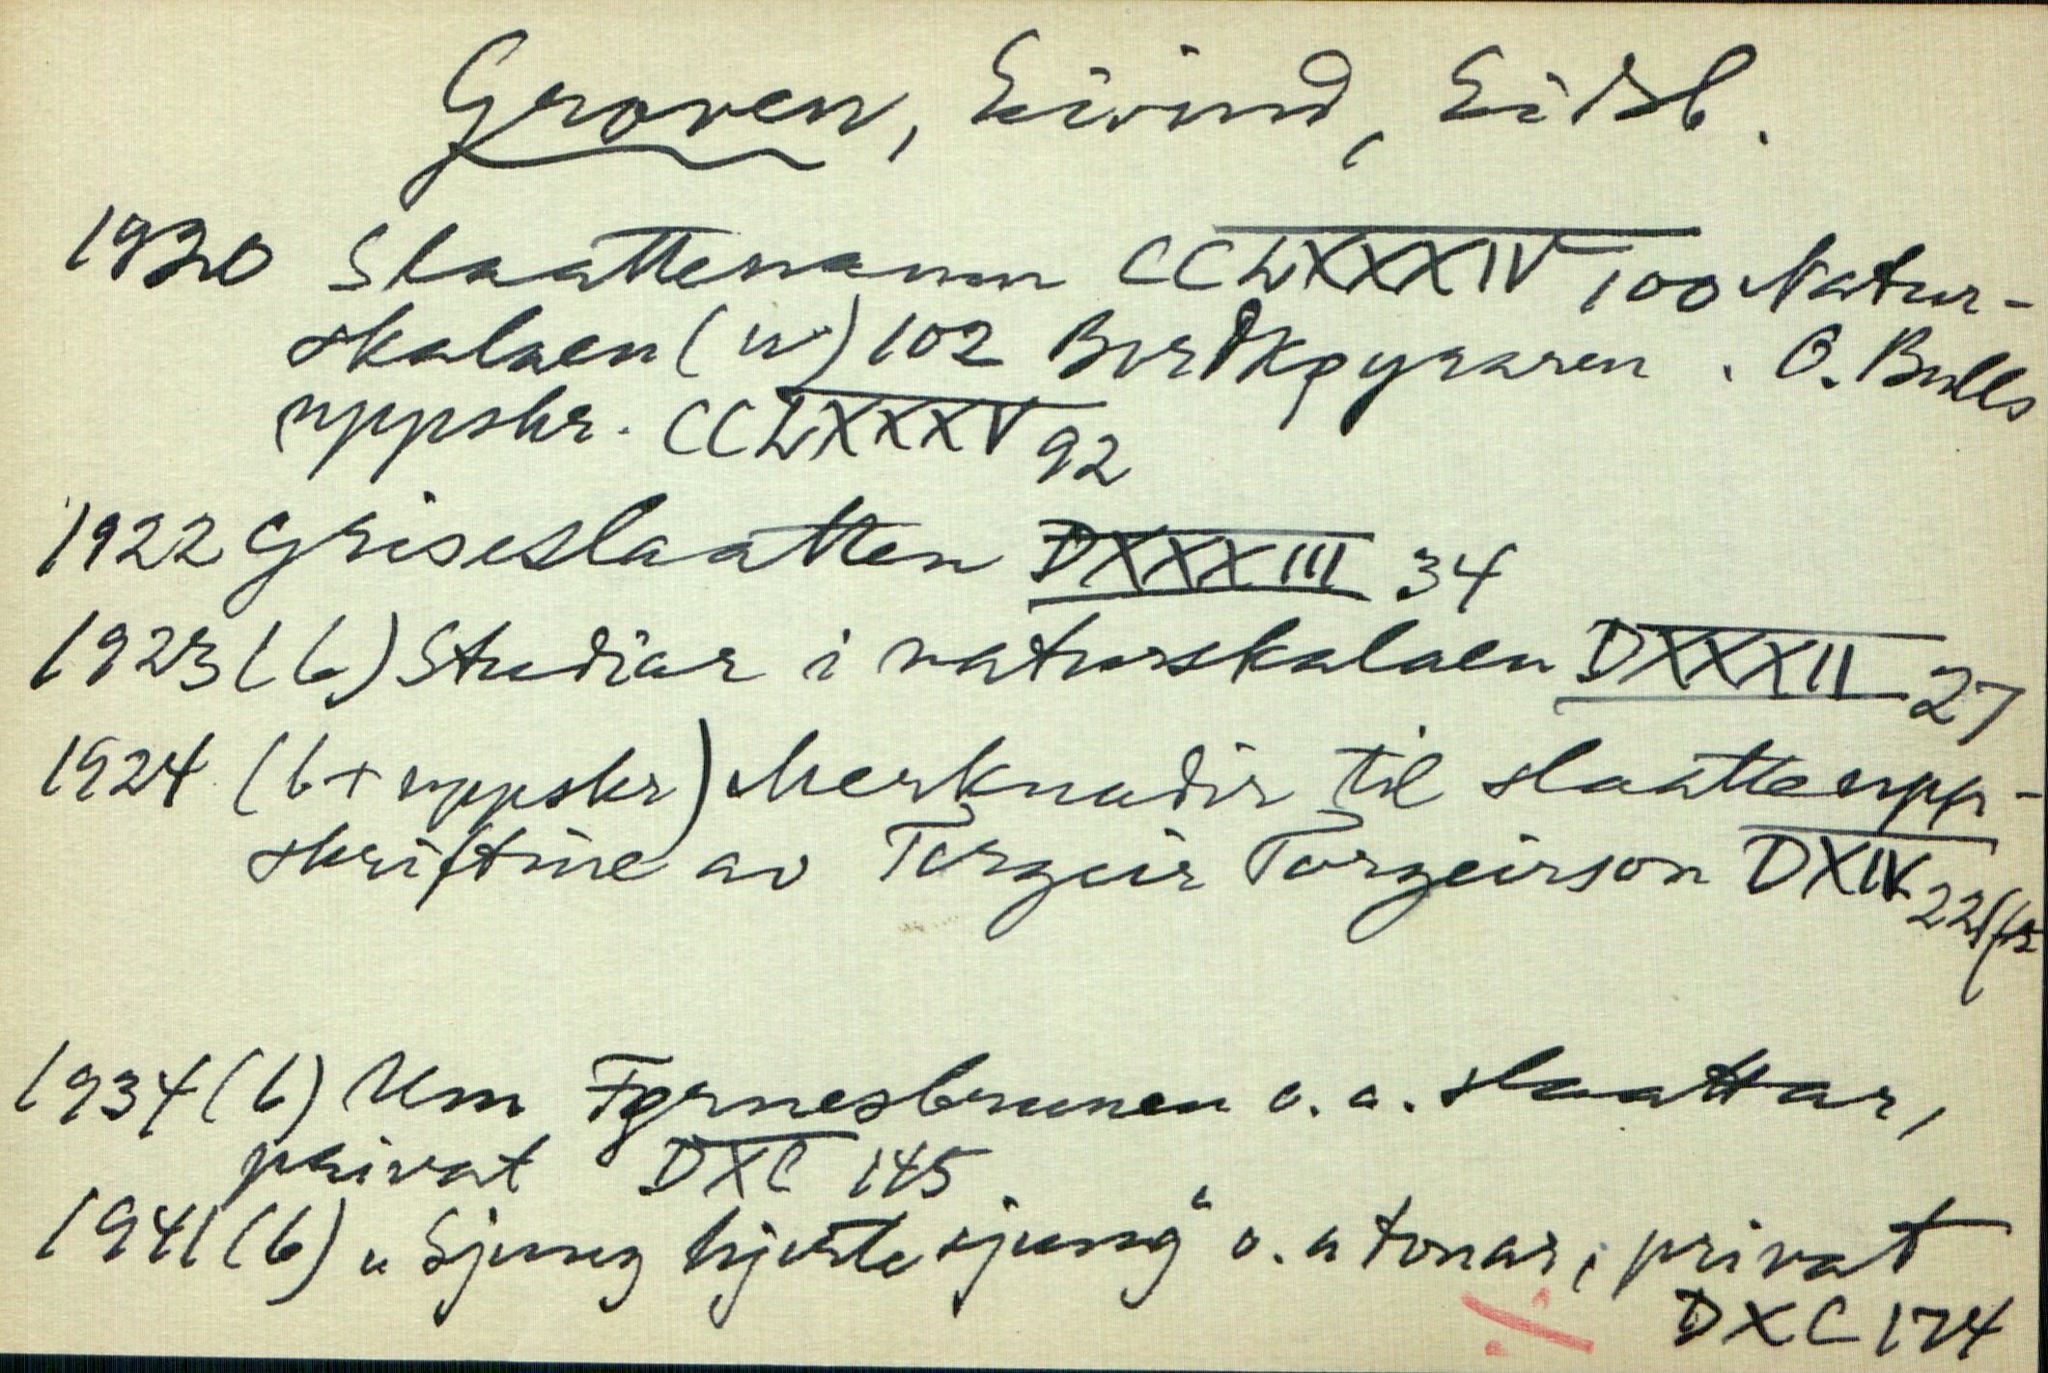 Groven, Eivind, Eidsb.
1920 Slaattenamn CCLXXXIV 100 Natur-
skalaen (u) 102 O. Bulls
uppskr. CCLXXXV 92
1922 Griseslaatten DXXXIII 34
1923 (b) Studiar i naturskalaen DXXXII 27
1924 (b + uppskr) Merknadir til slaatteupp-
skriftine av Torgeir Torgeirson DXIV 22
1934 (b) Um Fyrnesbrunen o. a. slaattar,
privat DXC 145
1941 (b) "Sjung hjarte sjung" o. a tonar, privat
DXC 174